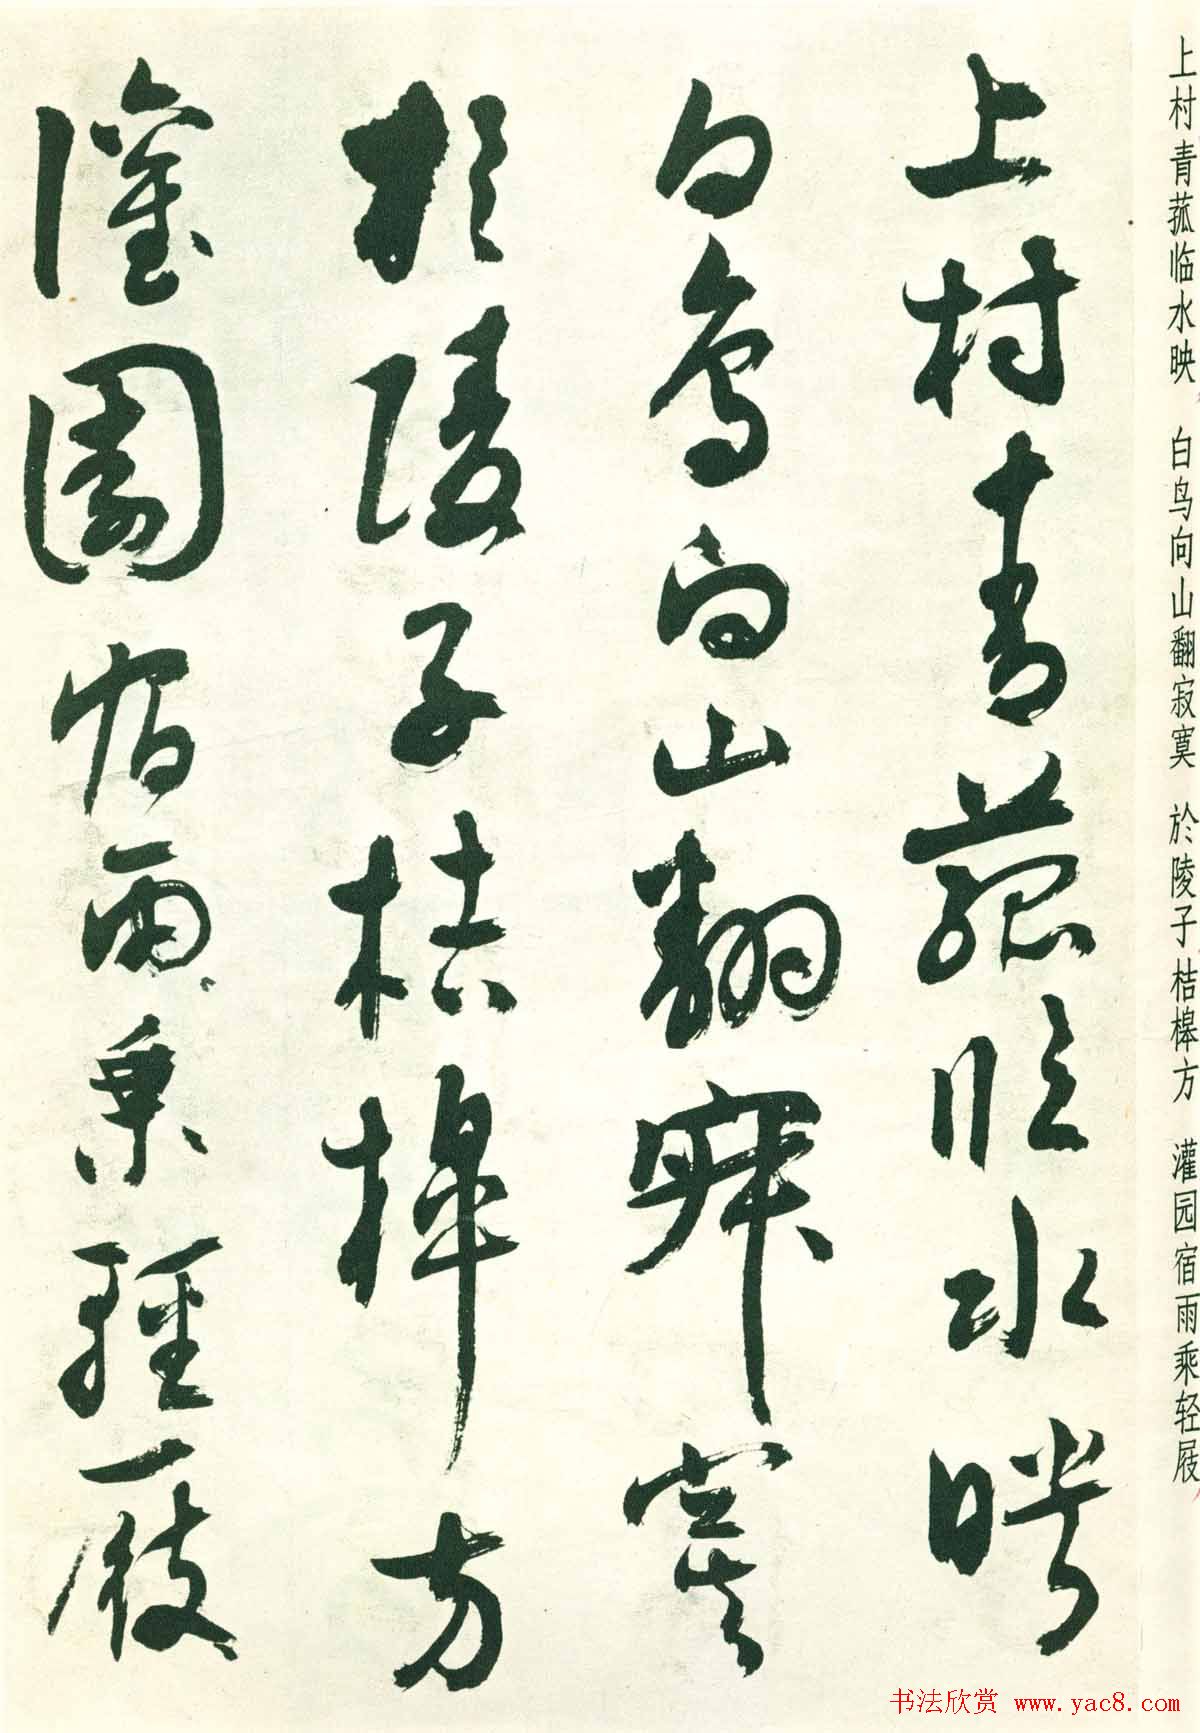 上村青菰临水映 白鸟向山翻寂寞 於陵子桔槔方 灌园宿雨乘轻屐
上村青菰臨水映
白鳥向山翻寂寞
於陵子桔槔方
灌園宿雨乘輕屐
书法欣赏 www.yac8.com